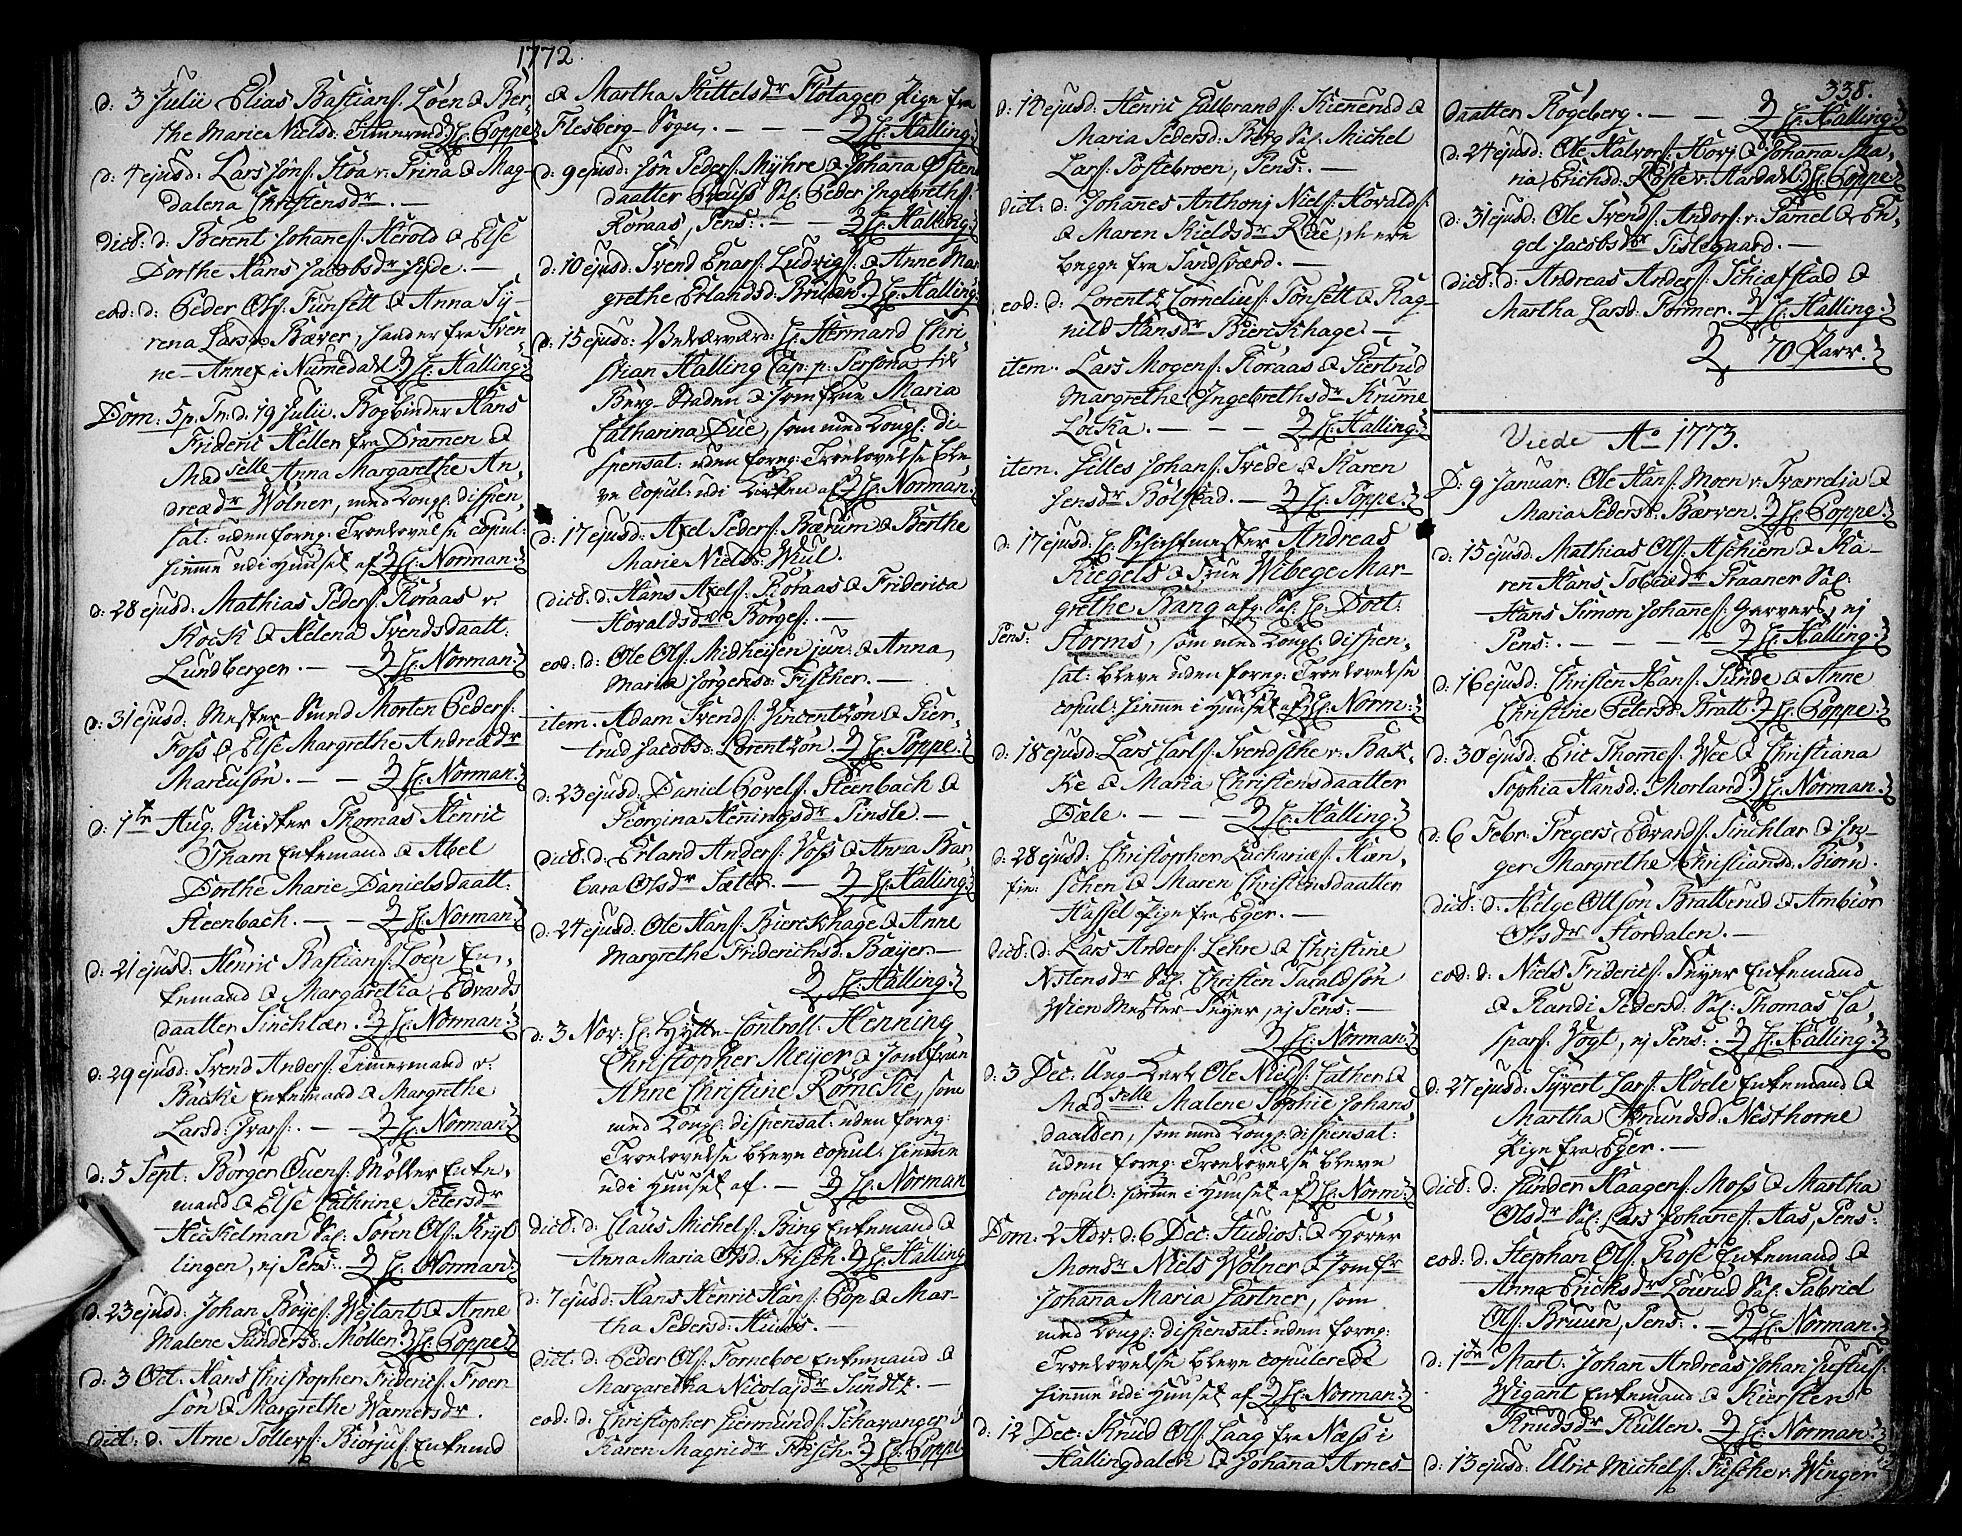 1772.
d: 3 Julii Elias Bastians: Löen & Ber,
the Marie Nielsd: Timmerud. Hr: Poppe
d: 4 ejusd: Lars Jöns: Stöa v. Prina & Mag-
dalena Christensdr. —
dict: d: Berent Johanes: Herold & Else
Dorthe Hans Jacobsdr Hyde. —
eod: d: Peder Ols: Funsett & Anna Sy-
rena Larsdr Bæver, hand er fra Sven,
ne-Annex i Numedahl. Hr: Halling.
Dom: 5 p. Tr: d: 19 Julii. Bogbinder Hans
Frideric Hellen fra Dramen &
Madselle Anna Margarethe An,
dreædr Wölner, med Kongl: dispen,
sat: uden foreg: Troelovelse copul:
hiemme udi Huuset af Hr: Norman.
d: 28 ejusd: Mathias Peders: Röraas v.
Kock & Helena Svendsdaatt:
Lundbergen. — Hr: Norman.
d: 31 ejusd: Mester-Smed Morten Peders:
Foss & Else Margrethe Andreædr
Marcusön. — — Hr: Norman.
d: 1te Aug: Svister Thomas Henric
Tham Enkemand & Abel
Dorthe Marie Danielsdaatt:
Steenbach. — — Hr: Norman.
d: 21 ejusd: Henric Bastians: Löen En,
kemand & Margaretha Edvards
daatter Sinchlær. Hr: Norman.
d: 29 ejusd: Svend Anders: Timmermand v.
Backe Enkemand & Margrethe
Larsd: Ivars: — Hr: Norman.
d: 5 Sept: Börger Ouens: Möller Enke,
mand & Else Cathrine Petersdr
Heckelman Sal: Sören Ols: Kryb
lingen, ej Pens: Hr: Norman.
d: 23 ejusd: Johan Böyes: Weylant & Anne
Malene Gundersd: Möller. Hr: Poppe
d: 3 Oct: Hans Christopher Frideric: Froen
Sön & Margrethe Warnersdr.
dict: d: Arne Tollers: Biörsju Enkemd
& Martha Kittelsdr Flötager Pige fra
Flesberg-Sogn. — — — Hr: Halling.
d: 9 ejusd: Jön Peders: Myhre & Johana Östens
daatter Preuss Sal: Peder Ingebreths:
Röraas, Pens: — Hr: Halling.
d: 10 ejusd: Svend Enars: Ludvigs: & Anne Mar
grethe Erlandsd: Bruun. Hr: Halling.
d: 15 ejusd: Velærværd: Hr: Hermand Chri-
stian Halling Cap: p: Persona til
Berg-Staden & Jomfrue Maria
Catharina Düe, som med Kongl: di-
spensat: uden foreg: Troelovelse ble
ve copul: udi Kirken af Hr: Norman.
d: 17 ejusd: Axel Peders: Bærum & Berthe
Marie Nielsd: Wul.
dict: d: Hans Axels: Röraas & Friderica
Horaldsdr Börges: —
eod: d: Ole Ols: Midheisen jun: & Anna,
Maria Jörgensd: Fischer. —
item. Adam Svends: Vincentzön & Gier-
trud Jacobsd: Lorentzön. Hr: Poppe.
d: 23 ejusd: Daniel Povels: Steenbach &
Georgina Henningsdr Tinsle. —
dict: d: Erland Anders: Voss & Anna Bar-
bara Olsdr Sæter. — Hr: Halling.
d: 24 ejusd: Ole Hans: Bierckhage & Anne
Margrethe Friderichsd: Bæyer. —
Hr: Halling.
d: 3 Nov: Hr: Hytte-Controll: Henning
Christopher Meyer & Jomfrue
Anne Christine Römcke, som
med Kongl: dispensat: uden foreg:
Troelovelse bleve copul: hiemme
udi Huuset af. — Hr: Norman
dict: d: Claus Michels: Bing Enkemand &
Anna Maria Olsd: Frisch. Hr: Halling
d: 7 ejusd: Hans Henric Hans: Pop & Mar-
tha Pedersd: Huus. —
dict: d: Peder Ols: Torneboe Enkemand &
Margaretha Nicolajdr Sundtz. —
eod: d: Christopher Giermunds: Schavanger &
Karen Magnidr Frisch. Hr: Poppe
338.
d: 14 ejusd: Henric Gulbrands: Kienerud &
Maria Pedersd: Berg Sal: Michel
Lars: Postebroen, Pens: —
dict: d: Johannes Anthonj Niels: Hovalds:
& Maren Kieldsdr Rue, de ere
begge fra Sandsværd. —
eod: d: Lorentz Cornelius: Tonsett & Rag-
nild Hansdr Bierckhage. —
item. Lars Mogens: Röraas & Giertrud
Margrethe Ingebrethsdr Krumme
Löcka. — — — Hr: Halling.
item. Gilles Johans: Svede & Karen
Jensdr Bölstad. — Hr: Poppe.
d: 17 ejusd: Hr: Schichtmester Andreas
Riegels & Frue Wibege Mar-
grethe Bang afg: Sal: Hr: Doct:
Pens: Storms, som med Kongl: dispen,
sat: bleve uden foreg: Troelovelse
copul: hiemme i Huuset af Hr: Norm:
d: 18 ejusd: Lars Carls: Svendsche v. Bak-
ke & Maria Christensdaatter
Dæle. — — — Hr: Halling.
d: 28 ejusd: Christopher Zacharies: Kæn,
fin: schen & Maren Christensdaatter
Hassel Pige fra Eger. —
dict: d: Lars Anders: Lehre & Christine
Nilensdr Sal: Christen Taraldsön
Wien Mester-Svyer, ej Pens: —
Hr: Norman.
d: 3 Dec: Ung Karl Ole Niels: Luther &
Madselle Malene Sophie Johans,
daatter, som med Kongl: dispensat:
uden foreg: Troelovelse bleve
copul: hiemme i Huuset af Hr: Norm:
Dom: 2 Adv: d: 6 Dec: Studios: & Hörer
Monsr Niels Wölner & Jomfr
Johana Maria Gärtner, som
med Kongl: dispensat: uden foreg:
Troelovelse bleve copulerede
hiemme udi Huuset af Hr: Norman.
d: 12 Dec: Knud Ols: Laag fra Næss i
Hallingdalen & Johana Arnes-
daatter Rogeberg. — — Hr: Halling.
d: 24 ejusd: Ole Halvors: Hovj & Johana Ma,
ria Erichsd: Röste v. Aardahl. Hr: Poppe
d: 31 ejusd: Ole Svends: Andors: v. Gamel & En,
gel Jacobsdr Tislegaard. —
dict: d: Andreas Anders: Schiæfstad &
Martha Larsd: Former. — Hr: Halling.
70 Parr.
Viede Ao 1773.
D: 9 Januar: Ole Hans: Moen v. Tværrelia &
Maria Pedersd: Bærven. Hr: Poppe.
d: 15 ejusd: Mathias Ols: Aschiem & Ka-
ren Hans Tobiædr Praaner Sal:
Hans Simon Johanes: Garvers, ej
Pens: — — Hr: Halling.
d: 16 ejusd: Christen Hans: Sunde & Anne
Christine Petersd: Bratt. Hr: Poppe.
d: 30 ejusd: Eric Thomes: Wee & Christiana
Sophia Hansd: Morland. Hr: Norman.
d: 6 Febr: Gregers Edvards: Sinchlær & In-
ger Margrethe Christiansd: Biörn.
dict: d: Helge Ottsön Bratterud & Ambiör
Olsdr Stordalen. —
eod: d: Niels Frideric: Feyer Enkemand
& Randi Pedersd: Sal: Thomas Ca,
spars: Vogt, ej Pens: — Hr: Halling.
d: 27 ejusd: Syvert Lars: Höele Enkemand &
Martha Amundsd: Nesthorne
Pige fra Eger. —
dict: d: Gunder Haagens: Moss & Martha
Olsdr Sal: Lars Johanes: Aas, Pens:
eod: d: Stephan Ols: Rose Enkemand &
Anna Ericksdr Loerud Sal: Gabriel
Ols: Bruun, Pens: — Hr: Norman.
d: 1te Mart: Johan Andreas Johan Justus:
Wigant Enkemand & Kiersten
Knudsdr Rullen. — Hr: Norman.
d: 13 ejusd: Ulric Michels: Fusche v. Winger